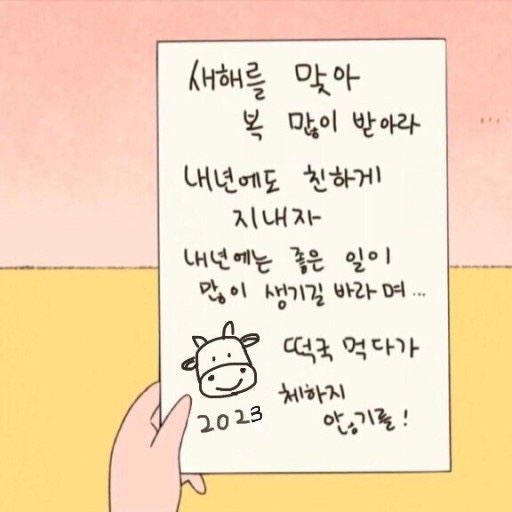 새해를 맞아
복 많이 받아라
내년에도 친하게
지내자
내년에는 좋은 일이
많이 생기길 바라며...
떡국 먹다가
체하지
않기를!
2023